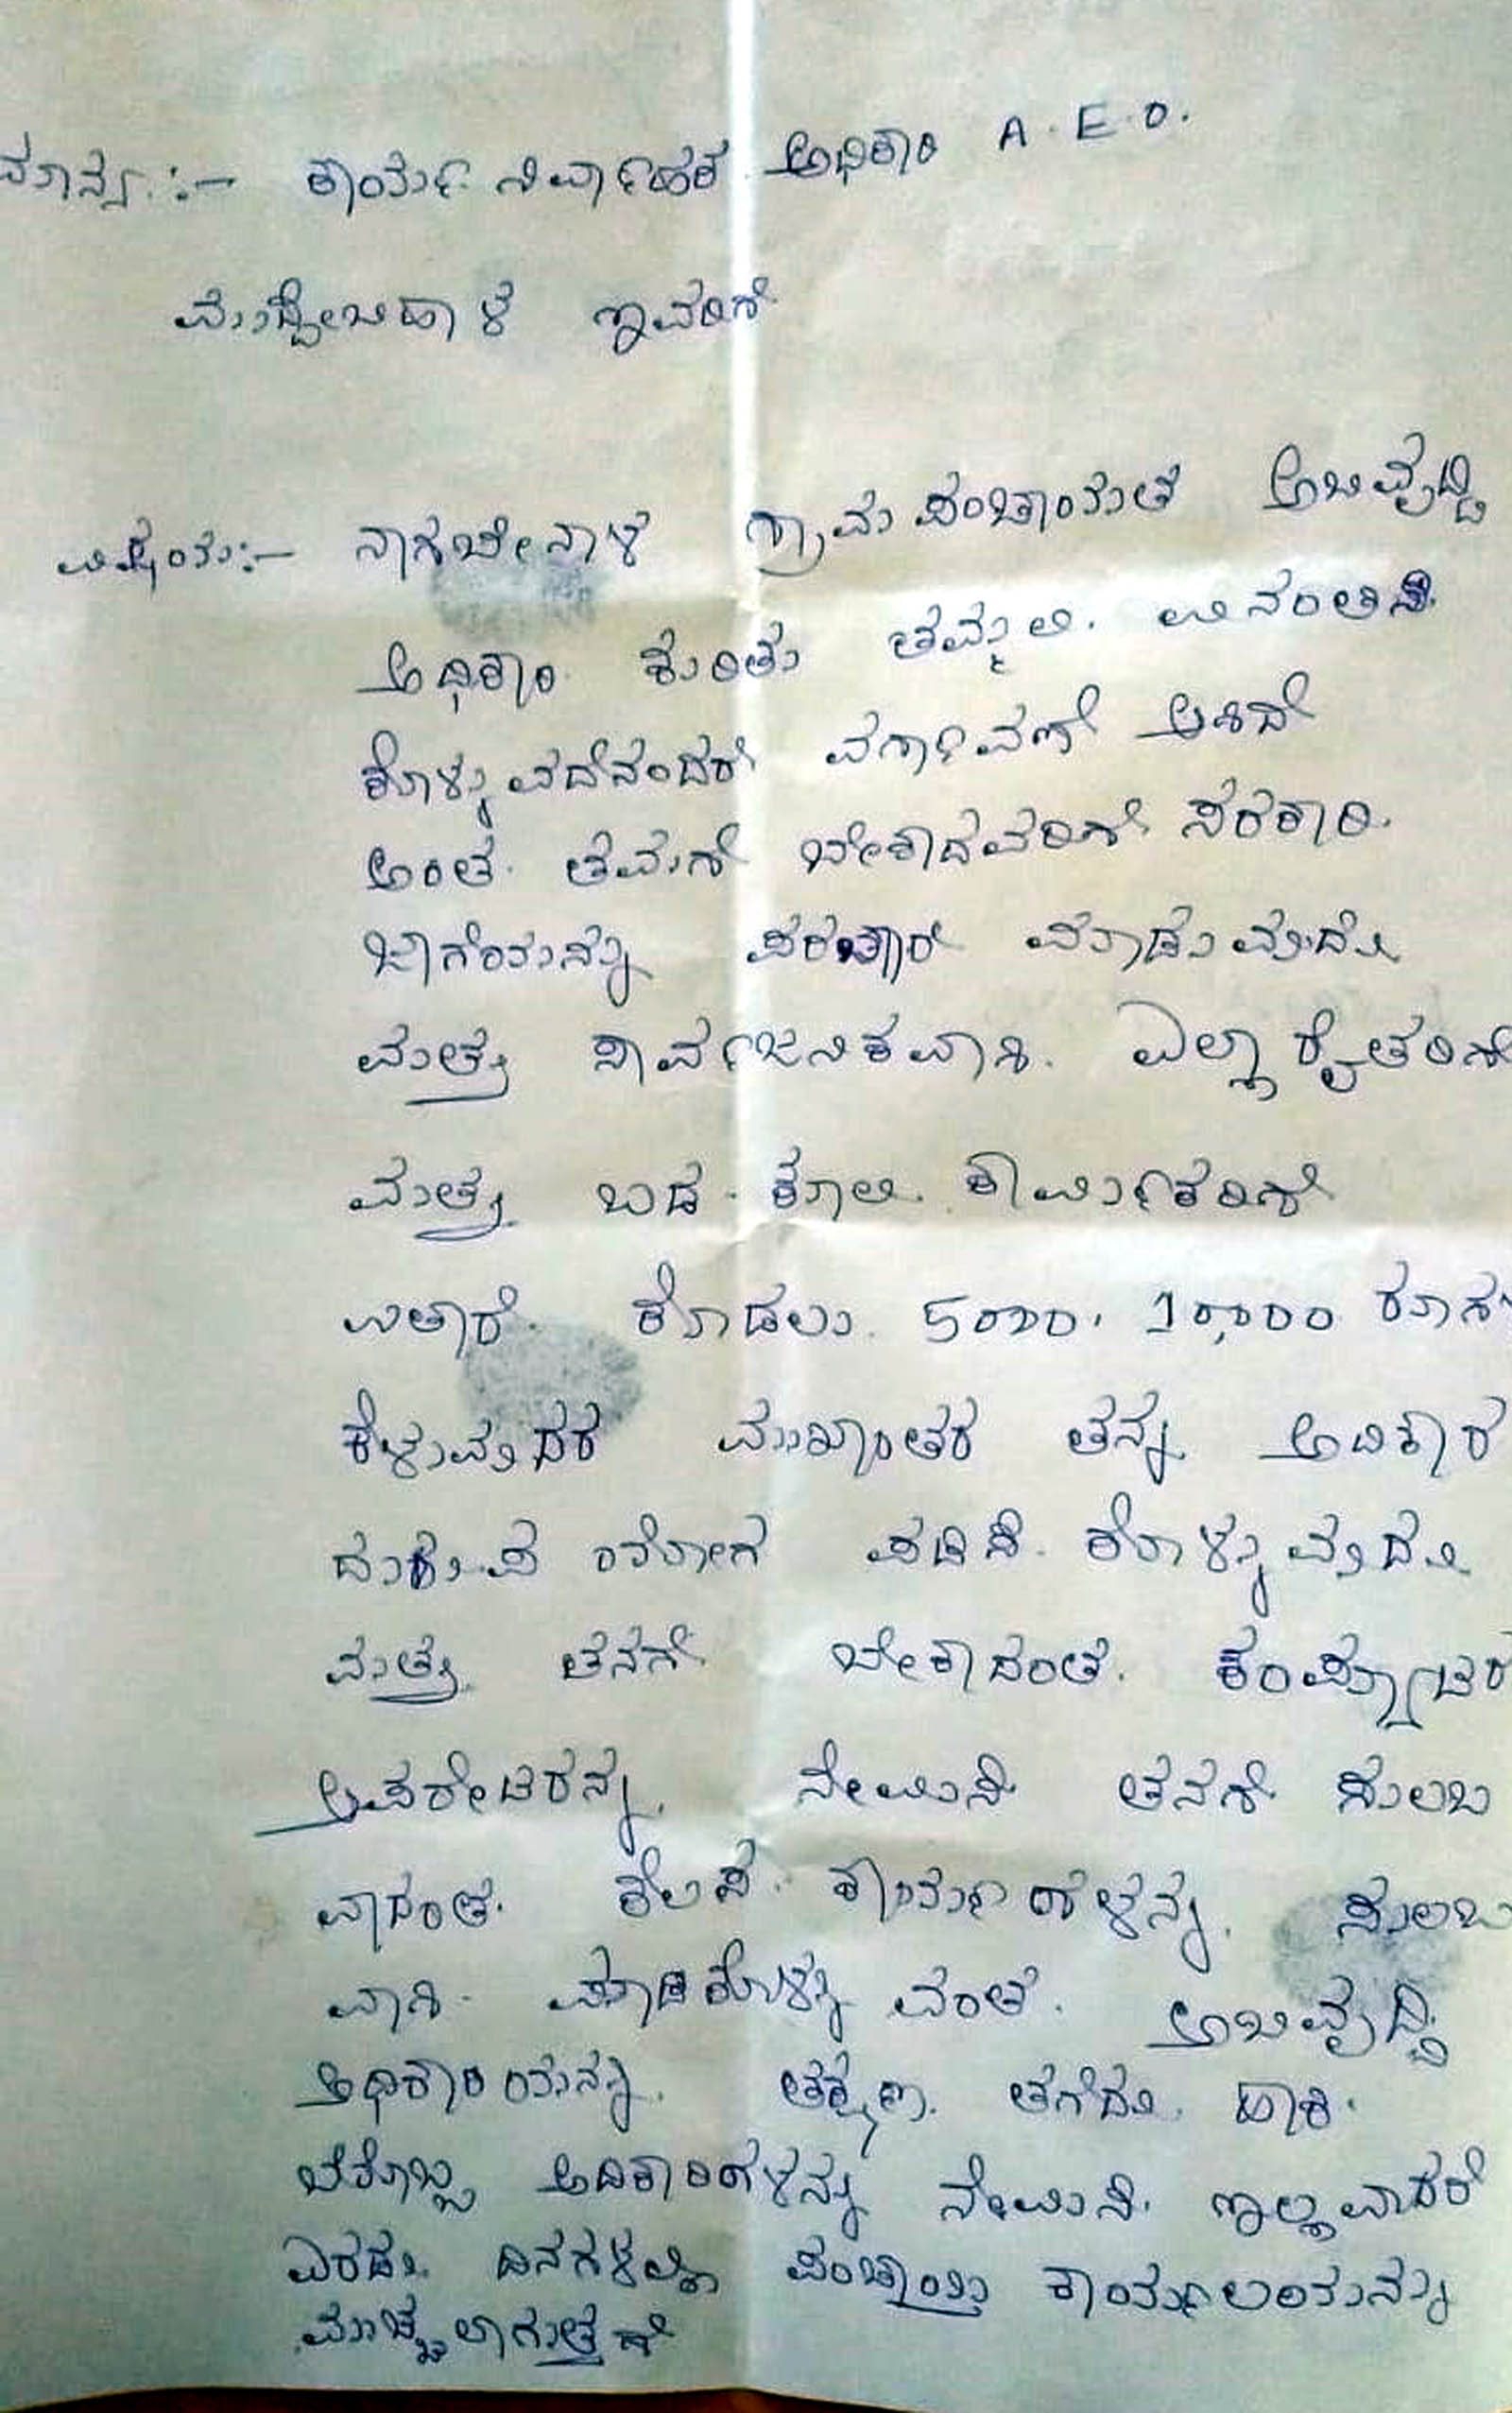 ಮಾನ್ಯ :- ಕಾರ್ಯ ನಿರ್ವಾಹಕ ಅಧಿಕಾರಿ A.E.O.
ಮುದ್ದೇಬಿಹಾಳ ಇವರಿಗೆ
ವಿಷಯ:- ನಾಗಬೇನಾಳ ಗ್ರಾಮ ಪಂಚಾಯತ ಅಭಿವೃದ್ಧಿ
ಅಧಿಕಾರಿ ಕುರಿತು ತಮ್ಮಲಿ. ವಿನಂತಿಸಿ
ಕೊಳ್ಳುವದೆನಂದರೆ ವರ್ಗಾವಣೆ ಆಗಿದೆ
ಅಂತ. ತಮಗೆ ಬೇಕಾದವರಿಗೆ ಸರಕಾರಿ.
ಜಾಗೆಯನ್ನು ಪರಬಾರೆ ಮಾಡುವುದು
ಮತ್ತು ಸಾರ್ವಜನಿಕವಾಗಿ. ಎಲ್ಲಾ ರೈತರಿಗೆ
ಮತ್ತು ಬಡ. ಕೂಲಿ. ಕಾರ್ಮಿಕರಿಗೆ
ಉತಾರೆ. ಕೊಡಲು. 5000. 10,000 ರೂಗಳ
ಕೆಳುವುದರ ಮುಖಾಂತರ ತನ್ನ ಅದಿಕಾರ
ದುರುಪ ಯೋಗ ಪಡಿಸಿ. ಕೊಳ್ಳುವುದು
ಮತ್ತು ತನಗೆ ಬೇಕಾದಂತ. ಕಂಪ್ಯೂಟರ
ಆಪರೇಟರನ್ನ ನೇಮಿಸಿ ತನಗೆ ಸುಲಬ
ವಾದಂತ. ಕೆಲಸ. ಕಾರ್ಯಗಳನ್ನ. ಸುಲಬ
ವಾಗಿ. ಮಾಡಿಕೊಳ್ಳು ವಂತ. ಅಭಿವೃದ್ಧಿ
ಅಧಿಕಾರಿಯನ್ನು. ತಕ್ಷಣ. ತಗೆದು. ಹಾಕಿ.
ಬೆರೊಬ್ಬ ಅದಿಕಾರಿಗಳನ್ನು ನೇಮಿಸಿ. ಇಲ್ಲವಾದರೆ
ಎರಡು. ದಿನಗಳಲ್ಲಿ ಪಂಚಾಯ್ತಿ ಕಾರ್ಯಾಲಯನ್ನು
ಮುಚ್ಚಲಾಗುತ್ತದೆ